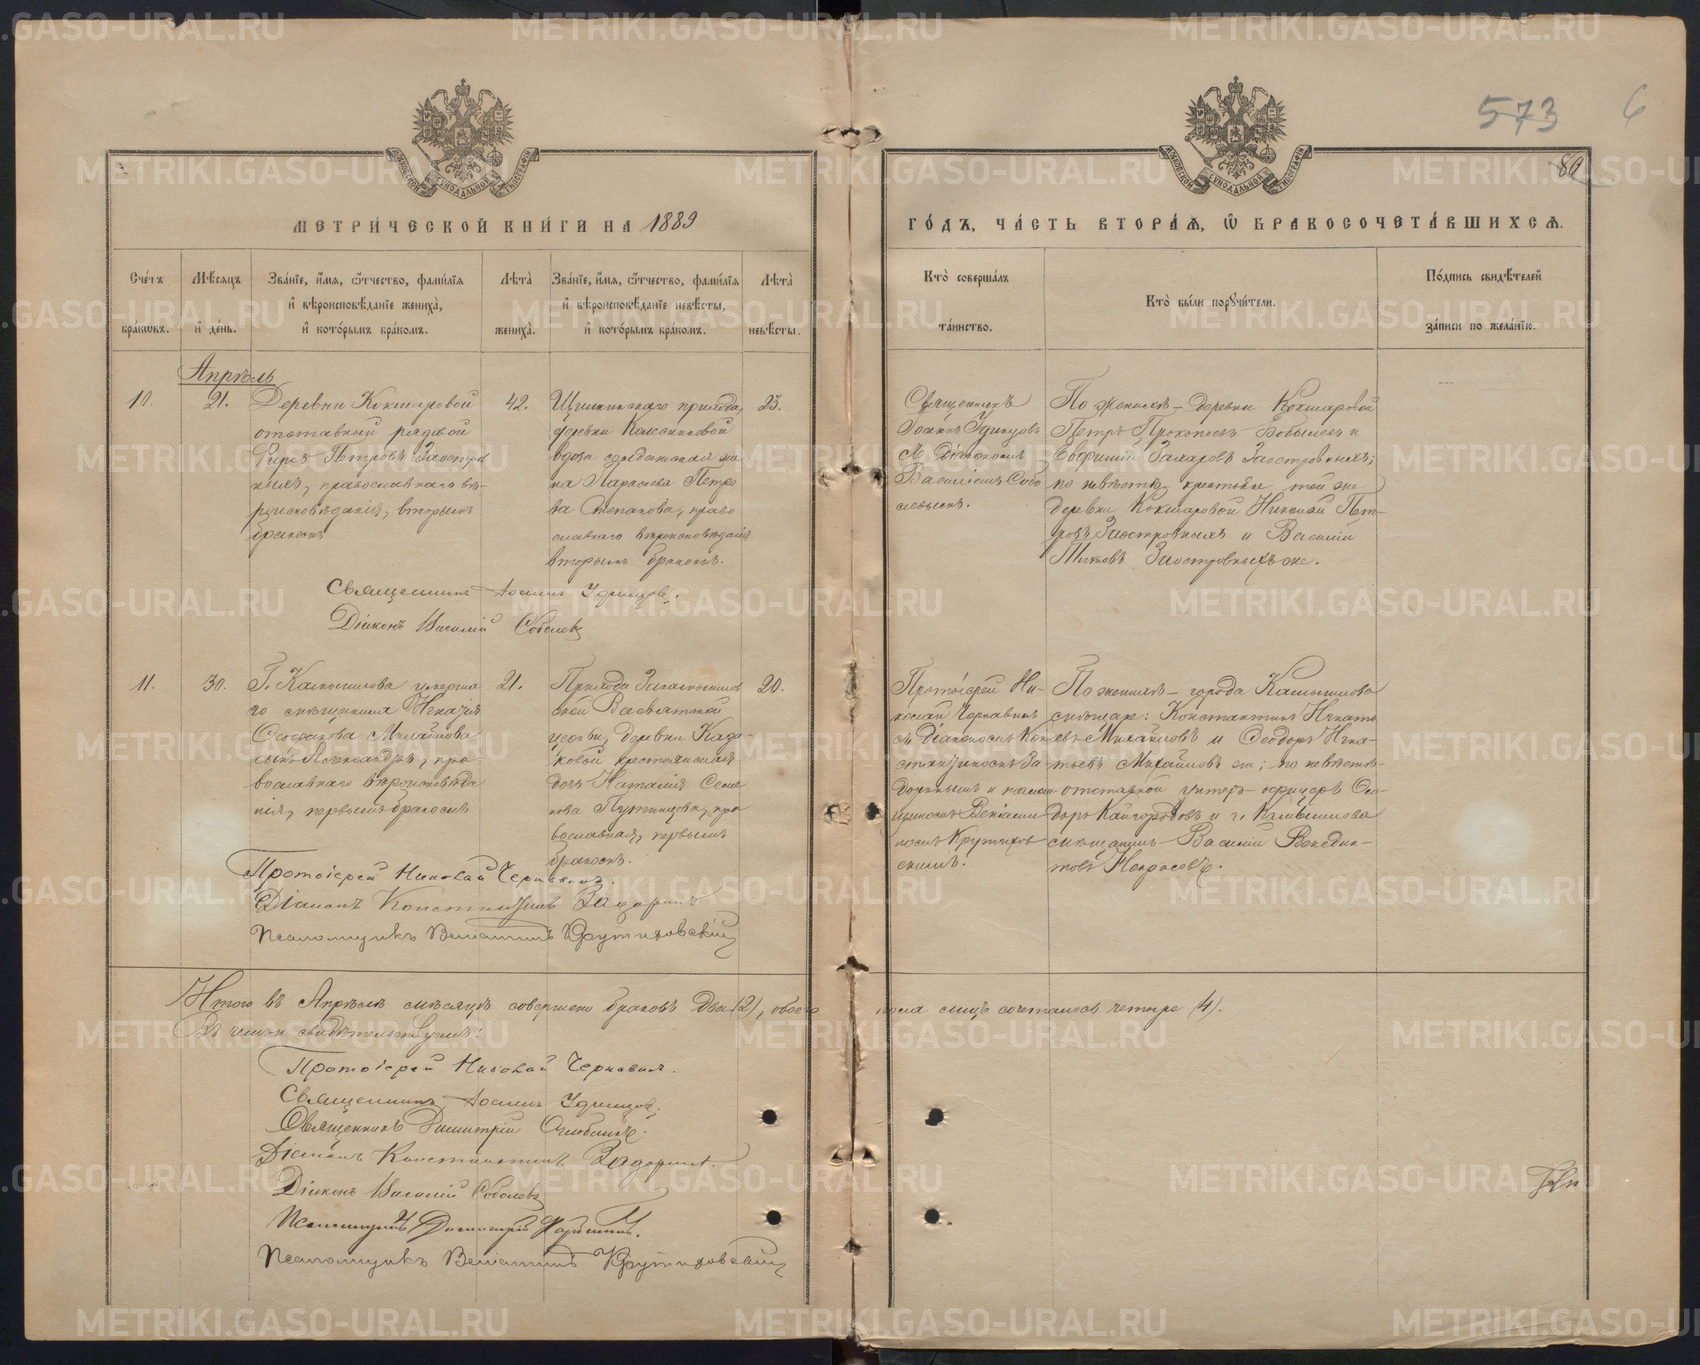 573 6
80
МЕТРИ́ЧЕСКОЙ КНИ́ГИ НА 1889
ГО́ДЪ, ЧА́СТЬ ВТОРА́Ѧ, Ѽ БРАКОСОЧЕТА́ВШИХСѦ.
Сче́тъ бра́кѡвъ.
Мѣ́сѧцъ и҆ де́нь.
Зва́нїе, и҆́мѧ, ѻ҆́тчество, фами́лїѧ и҆ вѣроисповѣ́данїе жениха̀, и҆ кото́рымъ бра́комъ.
Лѣта̀ жениха̀.
Зва́нїе, и҆́мѧ, ѻ҆́тчество, фами́лїѧ и҆ вѣроисповѣ́данїе невѣ́сты, и҆ кото́рымъ бра́комъ.
Лѣта̀ невѣ́сты.
Кто̀ соверша́лъ та́инство.
Кто̀ бы́ли порꙋчи́тели.
По́дпись свидѣ́телей за́писи по жела́нїю.
Апрѣль
10. 21.
Деревни Кокшаровой
отставный рядовой
Петровъ Заостров
ныхъ, православнаго вѣ-
роисповѣданія, вторымъ
бракомъ
42.
прихода,
деревни Колесниковой
вдова солдатская же
на Параскева Петро
ва Степанова, право
славнаго вѣроисповѣданія
вторымъ бракомъ.
23.
Священникъ
Іоаннъ Удинцовъ
съ Діакономъ
Василіемъ Собо
левымъ.
По женихѣ – деревни Кокшаровой
Петръ Прокопьевъ и
Евфимій Захаровъ Заостровныхъ;
по невѣстѣ, крестьяне той же
деревни Кокшаровой Николай Пет-
ровъ Заостровныхъ и Василій
Титовъ Заостровныхъ же.
Священникъ Іоаннъ Удинцовъ.
Діаконъ Василій Соболевъ
11. 30.
Г. Камышлова умерша
го мѣщанина Игнатія
Михайлова
сынъ Александръ, пра-
вославнаго вѣроисповѣда
нія, первымъ бракомъ
21.
Прихода Закамышлов
ской
церкви, деревни
крестьянская
дочь Наталія Семе
нова Путинцова, пра
вославная, первымъ
бракомъ.
20.
Протоіерей Ни-
колай Чернавинъ
съ Діакономъ Кон-
стантиномъ За-
доринымъ и псалом
щикомъ Веніами
номъ Крутихов
скимъ.
По женихѣ – города Камышлова
мѣщане: Константинъ Игнать
евъ Михайловъ и Ѳеодоръ Игна-
тьевъ Михайловъ же; по невѣстѣ-
отставной унтеръ-офицеръ Ѳео-
доръ Кайгородовъ и г. Камышлова
мѣщанинъ Василій Венедик-
товъ Некрасовъ.
Протоіерей Николай Чернавинъ.
Діаконъ Константинъ Задоринъ
Псаломщикъ Веніаминъ Крутиховскій
Итого въ Апрѣлѣ мѣсяцѣ совершено браковъ два (2), обоего пола лицъ сочеталось четыре (4).
Въ чемъ и свидѣтельствуемъ:
Протоіерей Николай Чернавинъ.
Священникъ Іоаннъ Удинцовъ.
Священникъ Димитрій
Діаконъ Константинъ Задоринъ.
Діаконъ Василій Соболевъ
Псаломщикъ Димитрій
Псаломщикъ Веніаминъ Крутиховскій
METRIKI.GASO-URAL.RU